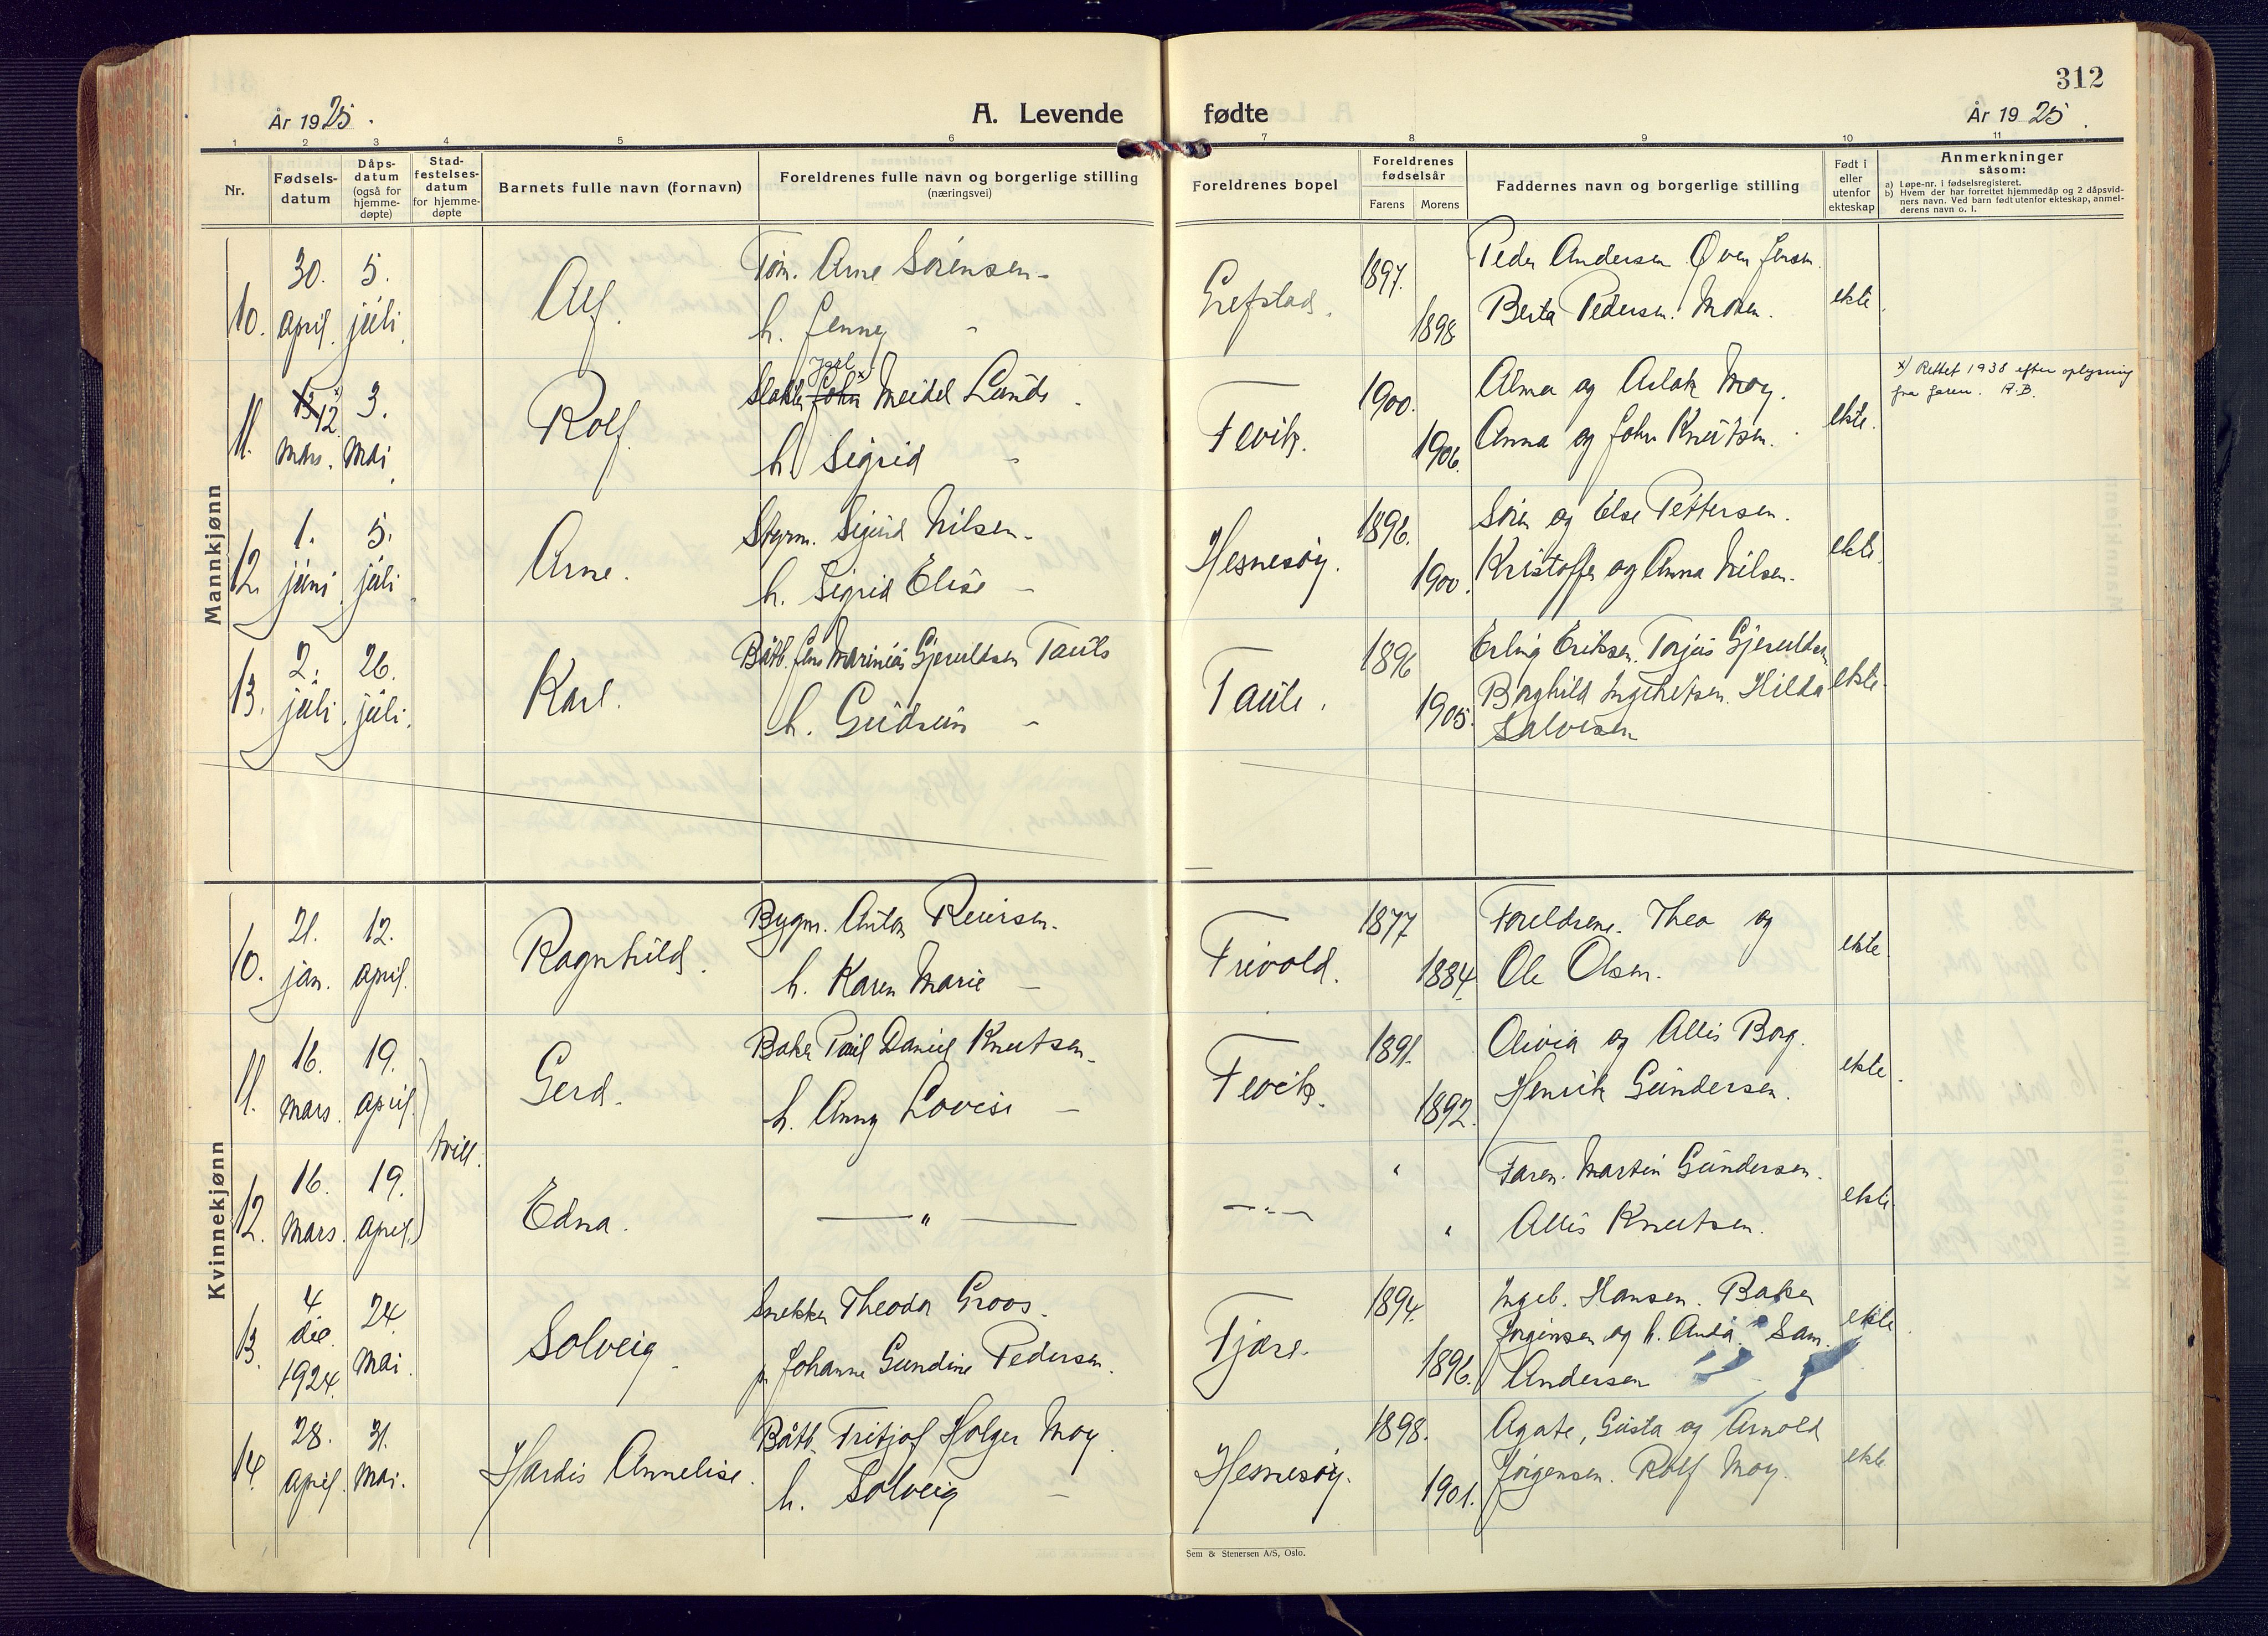 312
År 1925.
A. Levende
fødte
År 1925.
1 2 3 4 5 6 7 8 9 10 11
Nr.
Fødsels-
datum
Dåps-
datum
(også for
hjemme-
døpte)
Stad-
festelses-
datum
for hjemme-
døpte
Barnets fulle navn (fornavn)
Foreldrenes fulle navn og borgerlige stilling
(næringsvei)
Foreldrenes bopel
Foreldrenes
fødselsår
Farens
Morens
Faddernes navn og borgerlige stilling
Født i
eller
utenfor
ekteskap
Anmerkninger
såsom:
a) Løpe-nr. i fødselsregisteret.
b) Hvem der har forrettet hjemmedåp og 2 dåpsvid-
ners navn. Ved barn født utenfor ekteskap, anmel-
derens navn o. l.
Mannkjønn
10.
30.
april.
5.
juli.
Alf.
Tøm. Arne Sørensen -
h. Jenny -
Grefstad.
1897.
1898
Peder Andersen. Oven Jensen.
Berta Pedersen. Moen.
ekte.
11.
13 x) 12
Mars.
3.
Mai.
Rolf
Jarl
John x) Meidel Lunde.
h. Sigrid -
Fevik.
1900.
1906.
Alma og Aslak Moy.
Anna og John Knutsen.
ekte.
x) Rettet 1938 efter oplysning
fra faren. R.B.
12.
1.
juni.
5.
juli.
Arne.
Styrm. Sigurd Nilsen -
h. Sigrid Elise -
Hesnesøy.
1896.
1900.
Søren og Else Pettersen.
Kristoffer og Anna Nilsen.
ekte.
13.
2.
juli.
26.
juli.
Karl.
Båtb. Jens Marinius Gjeruldsen Taule
h. Gudrun -
Taule.
1896
1905.
Erling Eriksen. Torjus Gjeruldsen
Borghild Ingebretsen. Hilda
Salvesen
ekte.
Kvinnekjønn
10.
21.
jan.
12.
april.
Ragnhild.
Bygm. Anton Reiersen.
h. Karen Marie -
Frivold.
1877
1884.
Foreldrene. Thea og
Ole Olsen.
ekte.
11.
16.
mars.
19.
april.
tvill.
Gerd.
Baker Paul Daniel Knutsen -
h. Anny Lovise -
Fevik.
1891.
1892.
Olivia og Allis Borg.
Henrik Gundersen.
ekte.
12.
16.
Mars.
19.
april.
Edna.
— " —
— " —
"
"
Faren. Martin Gundersen.
Allis Knutsen.
ekte.
13.
4
de
1924.
24.
Mai.
Solveig.
Snekker Theodor Groos.
Johanne Gundine Pedersen.
Fjære.
1894.
1896.
Ingeb. Hansen. Baker
Jørgensen og h. Anda. Sam.
Andersen
ekte.
14.
28.
april.
31.
Mai.
Hardis Annelise.
Båtb. Fritjof Holger Moy.
h. Solveig -
Hesnesøy.
1898.
1901.
Agate, Gusta og Arnold
Jørgensen. Rolf Moy.
ekte
Sem & Stenersen A/S, Oslo.